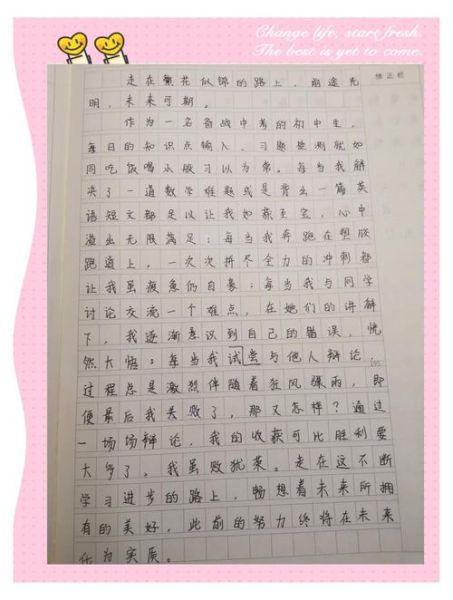 Change life, stare fresh.
The best is yet to come.
修正栏
走在繁花似锦的路上，前途光
明，未来可期。
作为一名备战中考的初中生，
每日的知识点输入、习题检测就如
同吃饭喝水般习以为常。每当我解
决了一道数学难题或是背出一篇英
语短文都足以让我如获至宝，心中
溢出无限满足；每当我奔跑在塑胶
跑道上，一次次拼尽全力的冲刺都
让我虽疲惫仍自豪；每当我与同学
讨论交流一个难点，在她们的讲解
下，我逐渐意识到自己的错误，恍
然大悟；每当我试尝与他人辩论，
过程总是激烈伴随着狂风骤雨，即
便最后我失败了，那又怎样？通过
一场场辩论，我的收获可比胜利要
大多了，我虽败犹荣。走在这不断
学习进步的路上，畅想着未来所拥
有的美好，此前的努力终将在未来
化为实质。